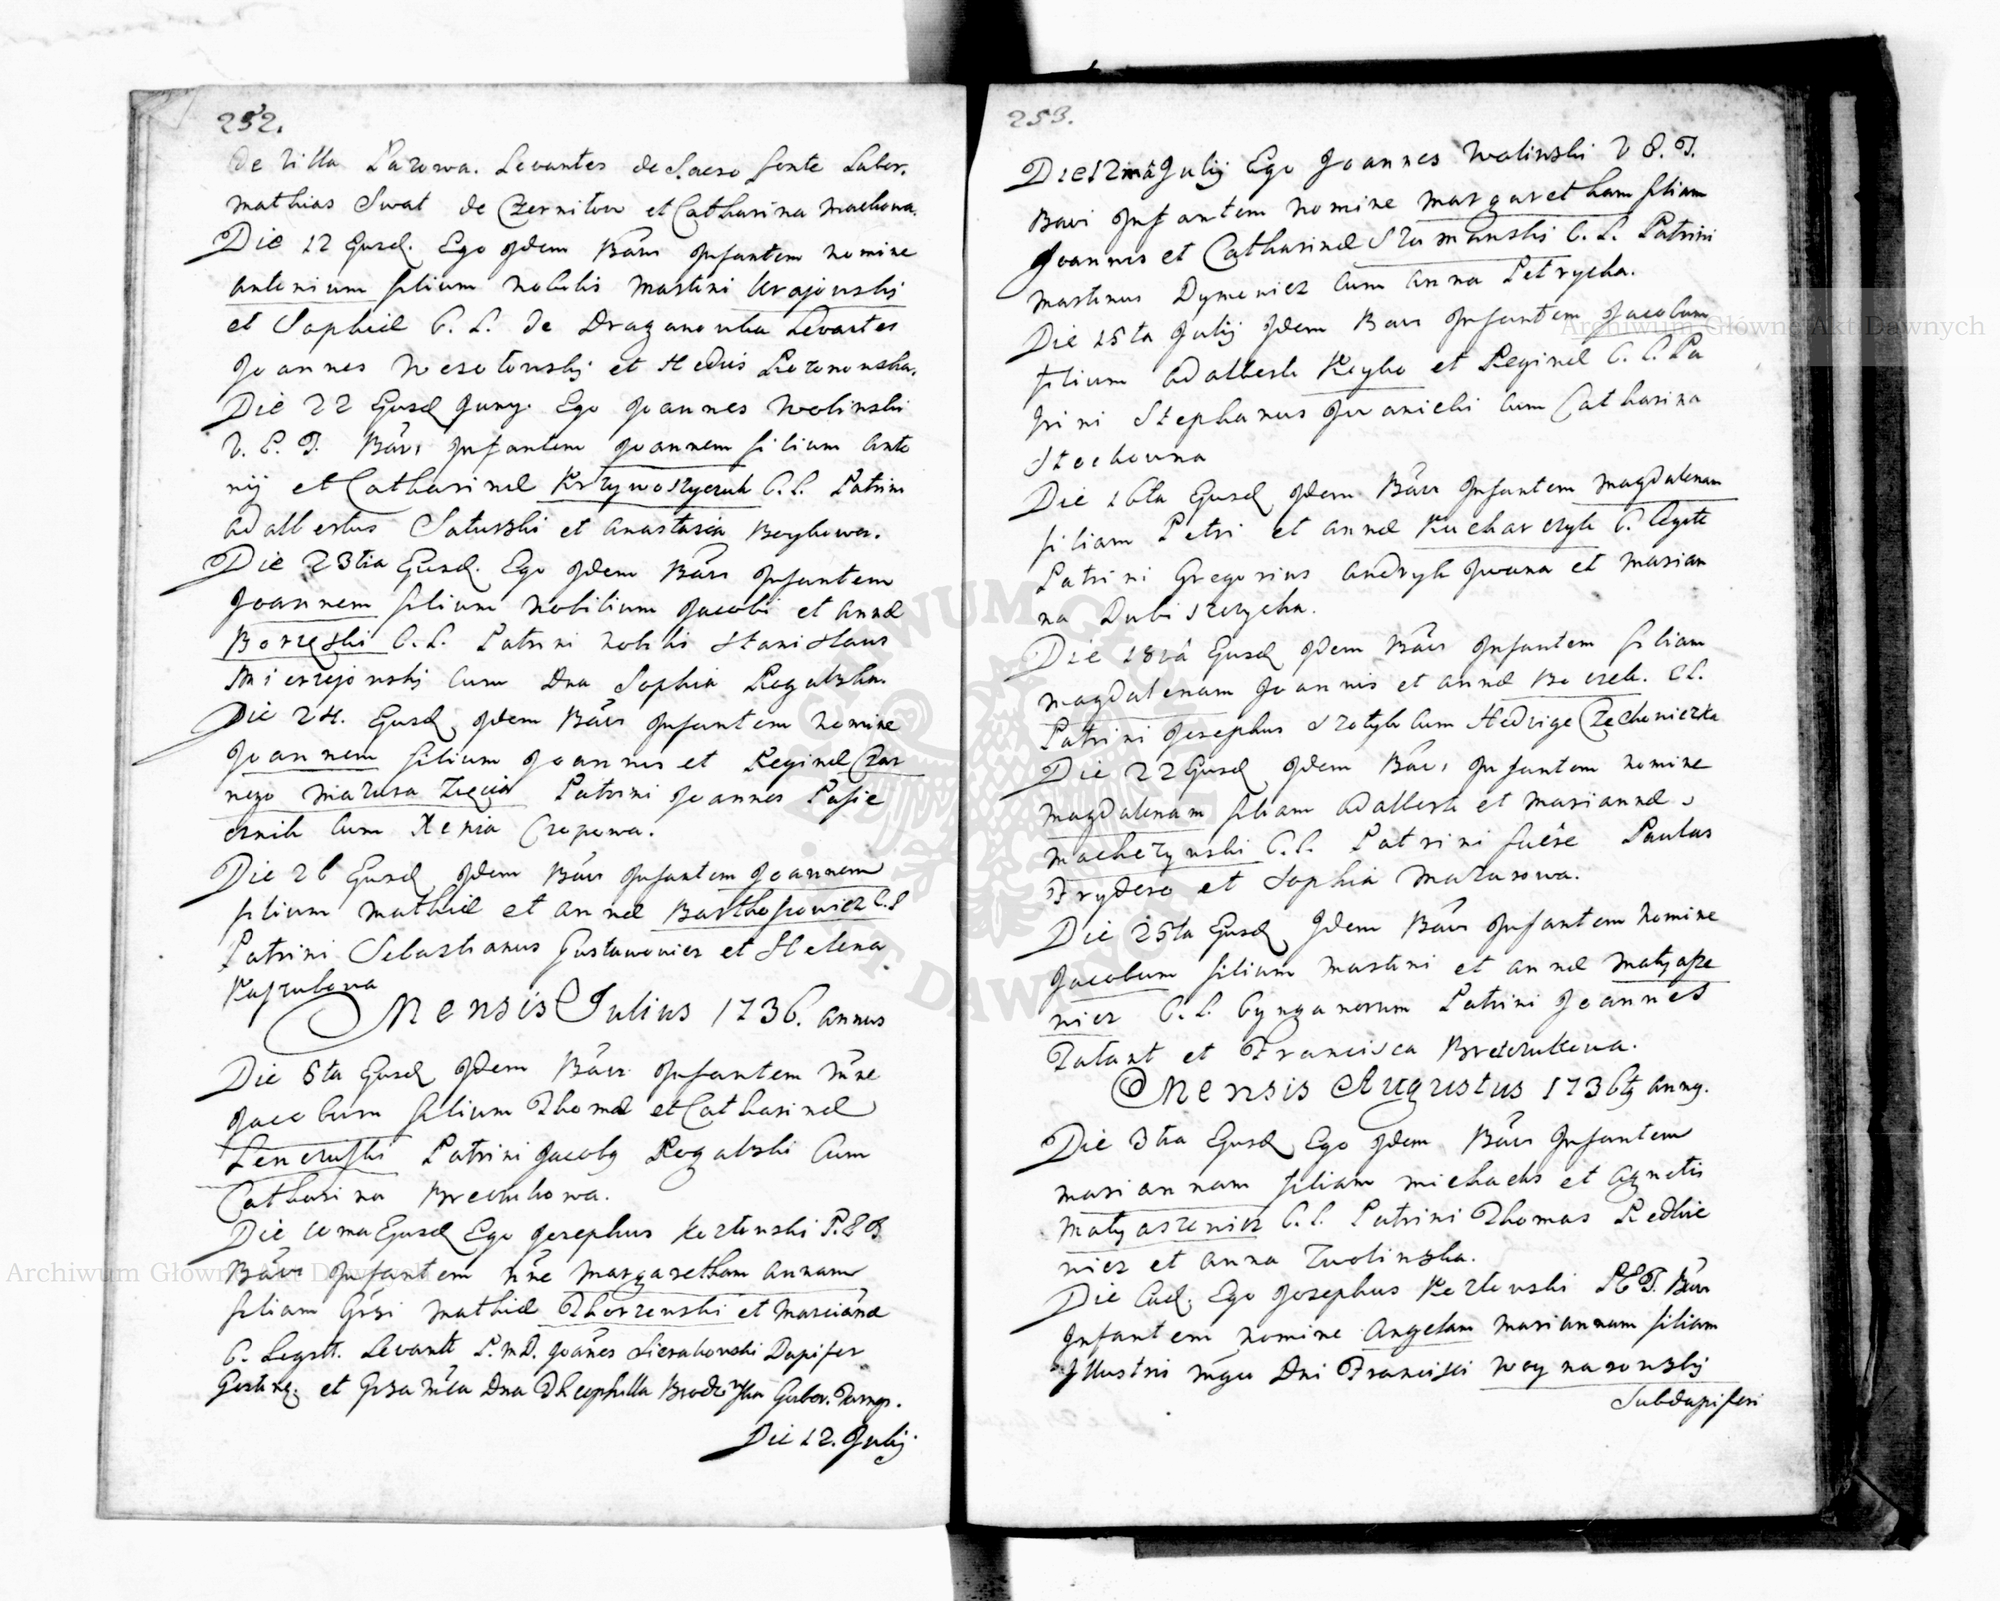 252.
de Villa Łazowa. Levantes de Sacro fonte Labor.
Mathias Swat de Czernitow et Catharina Machowa.
Die 12 Eiusd. Ego Idem Bãvi Infantem nomine
Antonium filium Nobilis Martini Krajewskij
et Sophiæ C. L. de Draganowka Levantes
Joannes Wesołowskij et Hedvis
Die 22 Eiusd Junij. Ego Joannes Wolinski
V. E. T. Bãvi Infantem Joannem filium Anto
nij et Catharinæ Krzywoszyczuk C. L. Patrini
Adalbertus Saturski et Anastasia Boykowa.
Die 23tia Eiusd. Ego Idem Bãvi Infantem
Joannem filium Nobilium Jacobi et Annæ
Borzęski C. L. Patrini Nobilis Stanislaus
Mierzejowskij Cum Dna Sophia Rogalska.
Die 24. Eiusd Idem Bãvi Infantem nomine
Joannem filium Joannis et Reginæ Czar
nego Mazura Zięcia Patrini Joannes Pasie
cznik Cum Xenia Czopowa.
Die 26 Eiusd Idem Bãvi Infantem Joannem
filium Mathiæ et Annæ Barthosiewicz C. L
Patrini Sebastianus Gustawowicz et Helena
Kaszubowa
Mensis Julius 1736. Annus
Die 6ta Eiusd Idem Bãvi Infantem Nñne
Jacobum filium Thomæ et Catharinæ
Lenczuski Patrini Jacobg Rogalski Cum
Catharina
Die 10ma Eiusd Ego Josephus Kozłowski P. E T
Bãvi Infantem nñe Margaretham Annam
filiam Grsi Mathiæ Thorzewski et Marciãnæ
C. Legitt. Levantt P. M D. Joañes Sierakowski Dapifer
et Grsa Mta Dna Theophilla
Die 12. Julij
253.
Die 12ma Julij Ego Joannes Wolinski V E. T.
Bavi Infantem nomine Margaretham filiam
Joannis et Catharinæ Szumanski C. L. Patrini
Martinus Dymenicz Cum Anna Petrycha.
Die 15ta Julij Idem Bavi Infantem Jacobum
filium Adalberti Koyko et Reginæ C. L. Pa
trini Stephanus Iwanicki Cum Catharina
Stechowna
Die 16ta Eiusd Idem Bãvi Infantem Magdalenam
filiam Petri et Annæ Kucharczyk C. Legitt
Patrini Gregorius Andryk Iwana et Marian
na
Die 18va Eiusd Idem Bãvi Infantem filiam
Magdalenam Joannis et Annæ C L.
Patrini Josephus Szotyk Cum Hedvige
Die 22 Eiusd Idem Bãvi Infantem nomine
Magdalenam filiam Adalberti et Mariannæ
Macherzynski C. L. Patrini fuére Paulus
Frydero et Sophia Mazurowa.
Die 25ta Eiusd Idem Bãvi Infantem nomine
Jacobum filium Martini et Annæ Matyasze
wicz C. L. Cynganorum Patrini Joannes
Tatant et Francisca
Mensis Augustus 1736tg Anng.
Die 3tia Eiusd Ego Idem Bãvi Infantem
Mariannam filiam Michaelis et Agnetis
Matyaszewicz C. L. Patrini Thomas Redkie
wicz et Anna Zwolinska.
Die Ead. Ego Josephus Kozłowski P E T. Bãvi
Infantem nomine Angelam Mariannam filiam
Illustris Mgci Dni Francisci Woynarowskij
Subdapiferi
Archiwum Główne Akt Dawnych
Archiwum Główne Akt Dawnych
ARCHIWUM GŁÓWNE AKT DAWNYCH